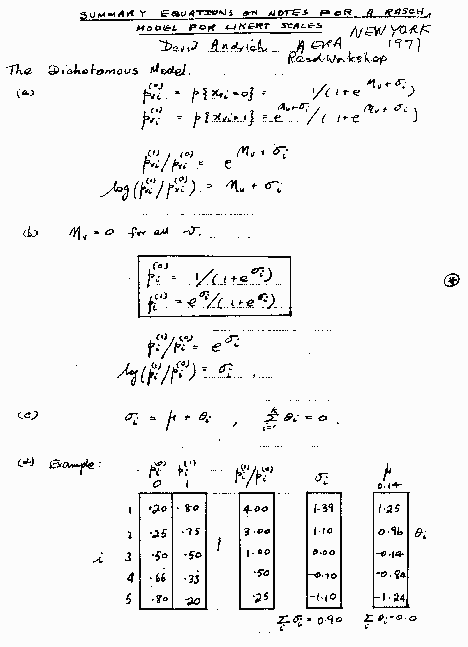 SUMMARY EQUATIONS ON NOTES FOR A RASCH
MODEL FOR LIKERT SCALES
NEW YORK
David Andrich AERA 1977
Rasch Workshop
The Dichotomous Model.
(a) p_vi^(0) = p{x_vi=0} = 1/(1+e^(η_v+σ_i))
p_vi^(1) = p{x_vi=1} = e^(η_v+σ_i)/(1+e^(η_v+σ_i))
p_vi^(1)/p_vi^(0) = e^(η_v+σ_i)
log(p_vi^(1)/p_vi^(0)) = η_v + σ_i
(b) η_v = 0 for all v.
p_i^(0) = 1/(1+e^σ_i)
p_i^(1) = e^σ_i/(1+e^σ_i)
(*)
p_i^(1)/p_i^(0) = e^σ_i
log(p_i^(1)/p_i^(0)) = σ_i .
(c) σ_i = μ + θ_i , Σ_{i=1}^{k} θ_i = 0.
(d) Example: p_i^(0) p_i^(1) p_i^(1)/p_i^(0) σ_i μ
0 1 0.14
1 .20 .80 4.00 1.39 1.25
2 .25 .75 3.00 1.10 0.96 θ_i
i 3 .50 .50 1.00 0.00 -0.14
4 .66 .33 .50 -0.70 -0.84
5 .80 .20 .25 -1.10 -1.24
Σ_i σ_i = 0.90 Σ_i θ_i = 0.0